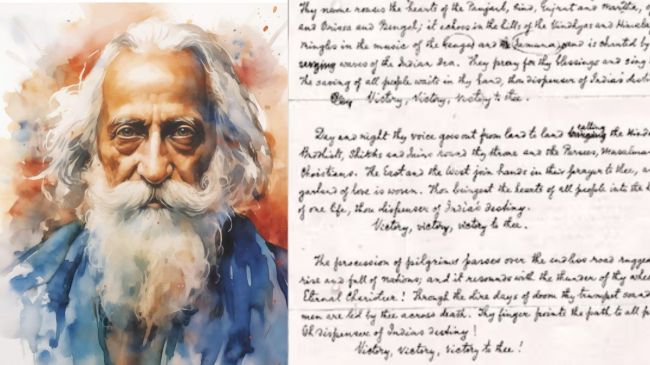 Thy name rouses the hearts of the Panjaub, Sind, Gujrat and Maratha,
and Orissa and Bengal; it echoes in the hills of the Vindhyas and Himala
mingles in the music of the Ganges and Jamuna, and is chanted by
waves of the Indian Sea. They pray for thy blessings and sing
The saving of all people waits in thy hand, thou dispenser of India's desti
Victory, Victory, Victory to thee.
Day and night thy voice goes out from land to land calling the Hindu
Buddhists, Sikhs and Jains round thy throne and the Parsees, Musalman
Christians. The East and the West join hands in their prayer to thee, a
garland of love is woven. Thou bringest the hearts of all people into the h
of one life, thou dispenser of India's destiny.
Victory, victory, victory to thee.
The procession of pilgrims passes over the endless road rugged
rise and fall of nations; and it resounds with the thunder of thy whee
Eternal Charioteer! Through the dire days of doom thy trumpet soun
men are led by thee across death. Thy finger points the path to all p
Oh dispenser of India's destiny!
Victory, Victory, Victory to thee!